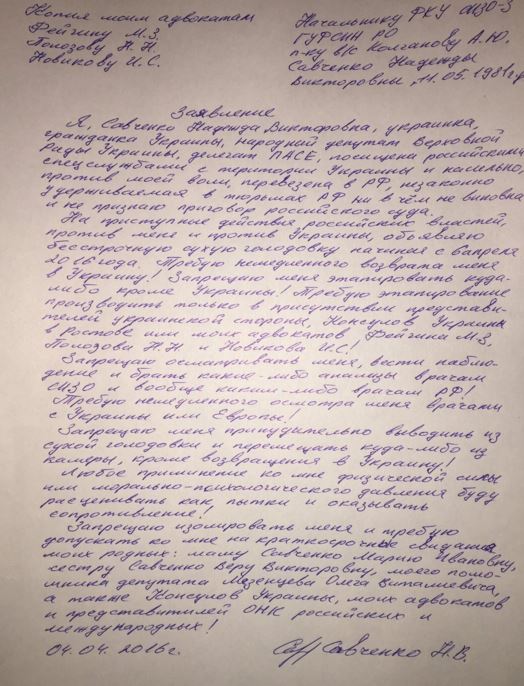 Копия моим адвокатам
Фейгину М.З.
Полозову Н.Н.
Новикову И.С.
Начальнику ФКУ СИЗО-3
ГУФСИН РО
п-ку в/с Колганову А.Ю.
Савченко Надежды
Викторовны, 11.05.1981г.р.
Заявление
Я, Савченко Надежда Викторовна, украинка,
гражданка Украины, народний депутат Верховной
Рады Украины, делегат ПАСЕ, похищена российскими
спецслужбами с територии Украины и насильно,
против моей воли, перевезена в РФ, незаконно
удерживаемая в тюрьмах РФ ни в чём не виновна
и не признаю приговор российского суда.
На приступные действия российских властей,
против меня и против Украины, объявляю
бессрочную сухую голодовку начиная с 6 апреля
2016 года. Требую немедленного возврата меня
в Украину! Запрещаю меня этапировать куда-
либо кроме Украины! Требую этапирование
производить только в присутствии представи-
телей украинской стороны, Консулов Украины
в Ростове или моих адвокатов Фейгина М.З,
Полозова Н.Н и Новикова И.С!
Запрещаю осматривать меня, вести наблю-
дение и брать какие-либо анализы врачам
СИЗО и вообще каким-либо врачам РФ!
Требую немедленного осмотра меня врачами
с Украины или Европы!
Запрещаю меня принудительно выводить из
сухой голодовки и перемещать куда-либо из
камеры, кроме возвращения в Украину!
Любое приминение ко мне физической силы
или морально-психологического давления буду
расценивать как пытки и оказывать
сопротивление!
Запрещаю изолировать меня и требую
допускать ко мне на краткосрочные свидания
моих родных: маму Савченко Марию Ивановну,
сестру Савченко Веру Викторовну, моего помо-
мника депутата Мезенцева Олега Виталиевича,
а также Консулов Украины, моих адвокатов
и представитилей ОНК российских и
международных!
04.04.2016г.
Савченко Н.В.